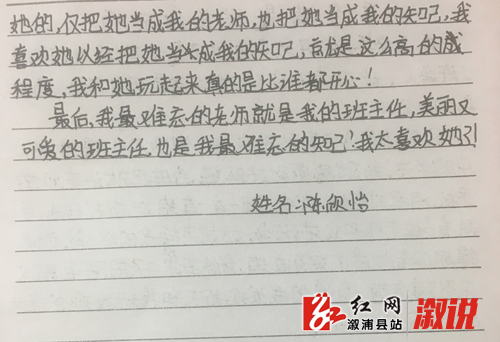 她的,仅把她当成我的老师,也把她当成我的知己,我
喜欢她以经把她当成我的知己,言就是这么高的成
程度,我和她玩起来真的是比谁都开心!
最后,我最难忘的老师就是我的班主任,美丽又
可爱的班主任,也是我最难忘的知己!我太喜欢她了!
姓名:陈欣怡
红网
溆浦县站
溆说